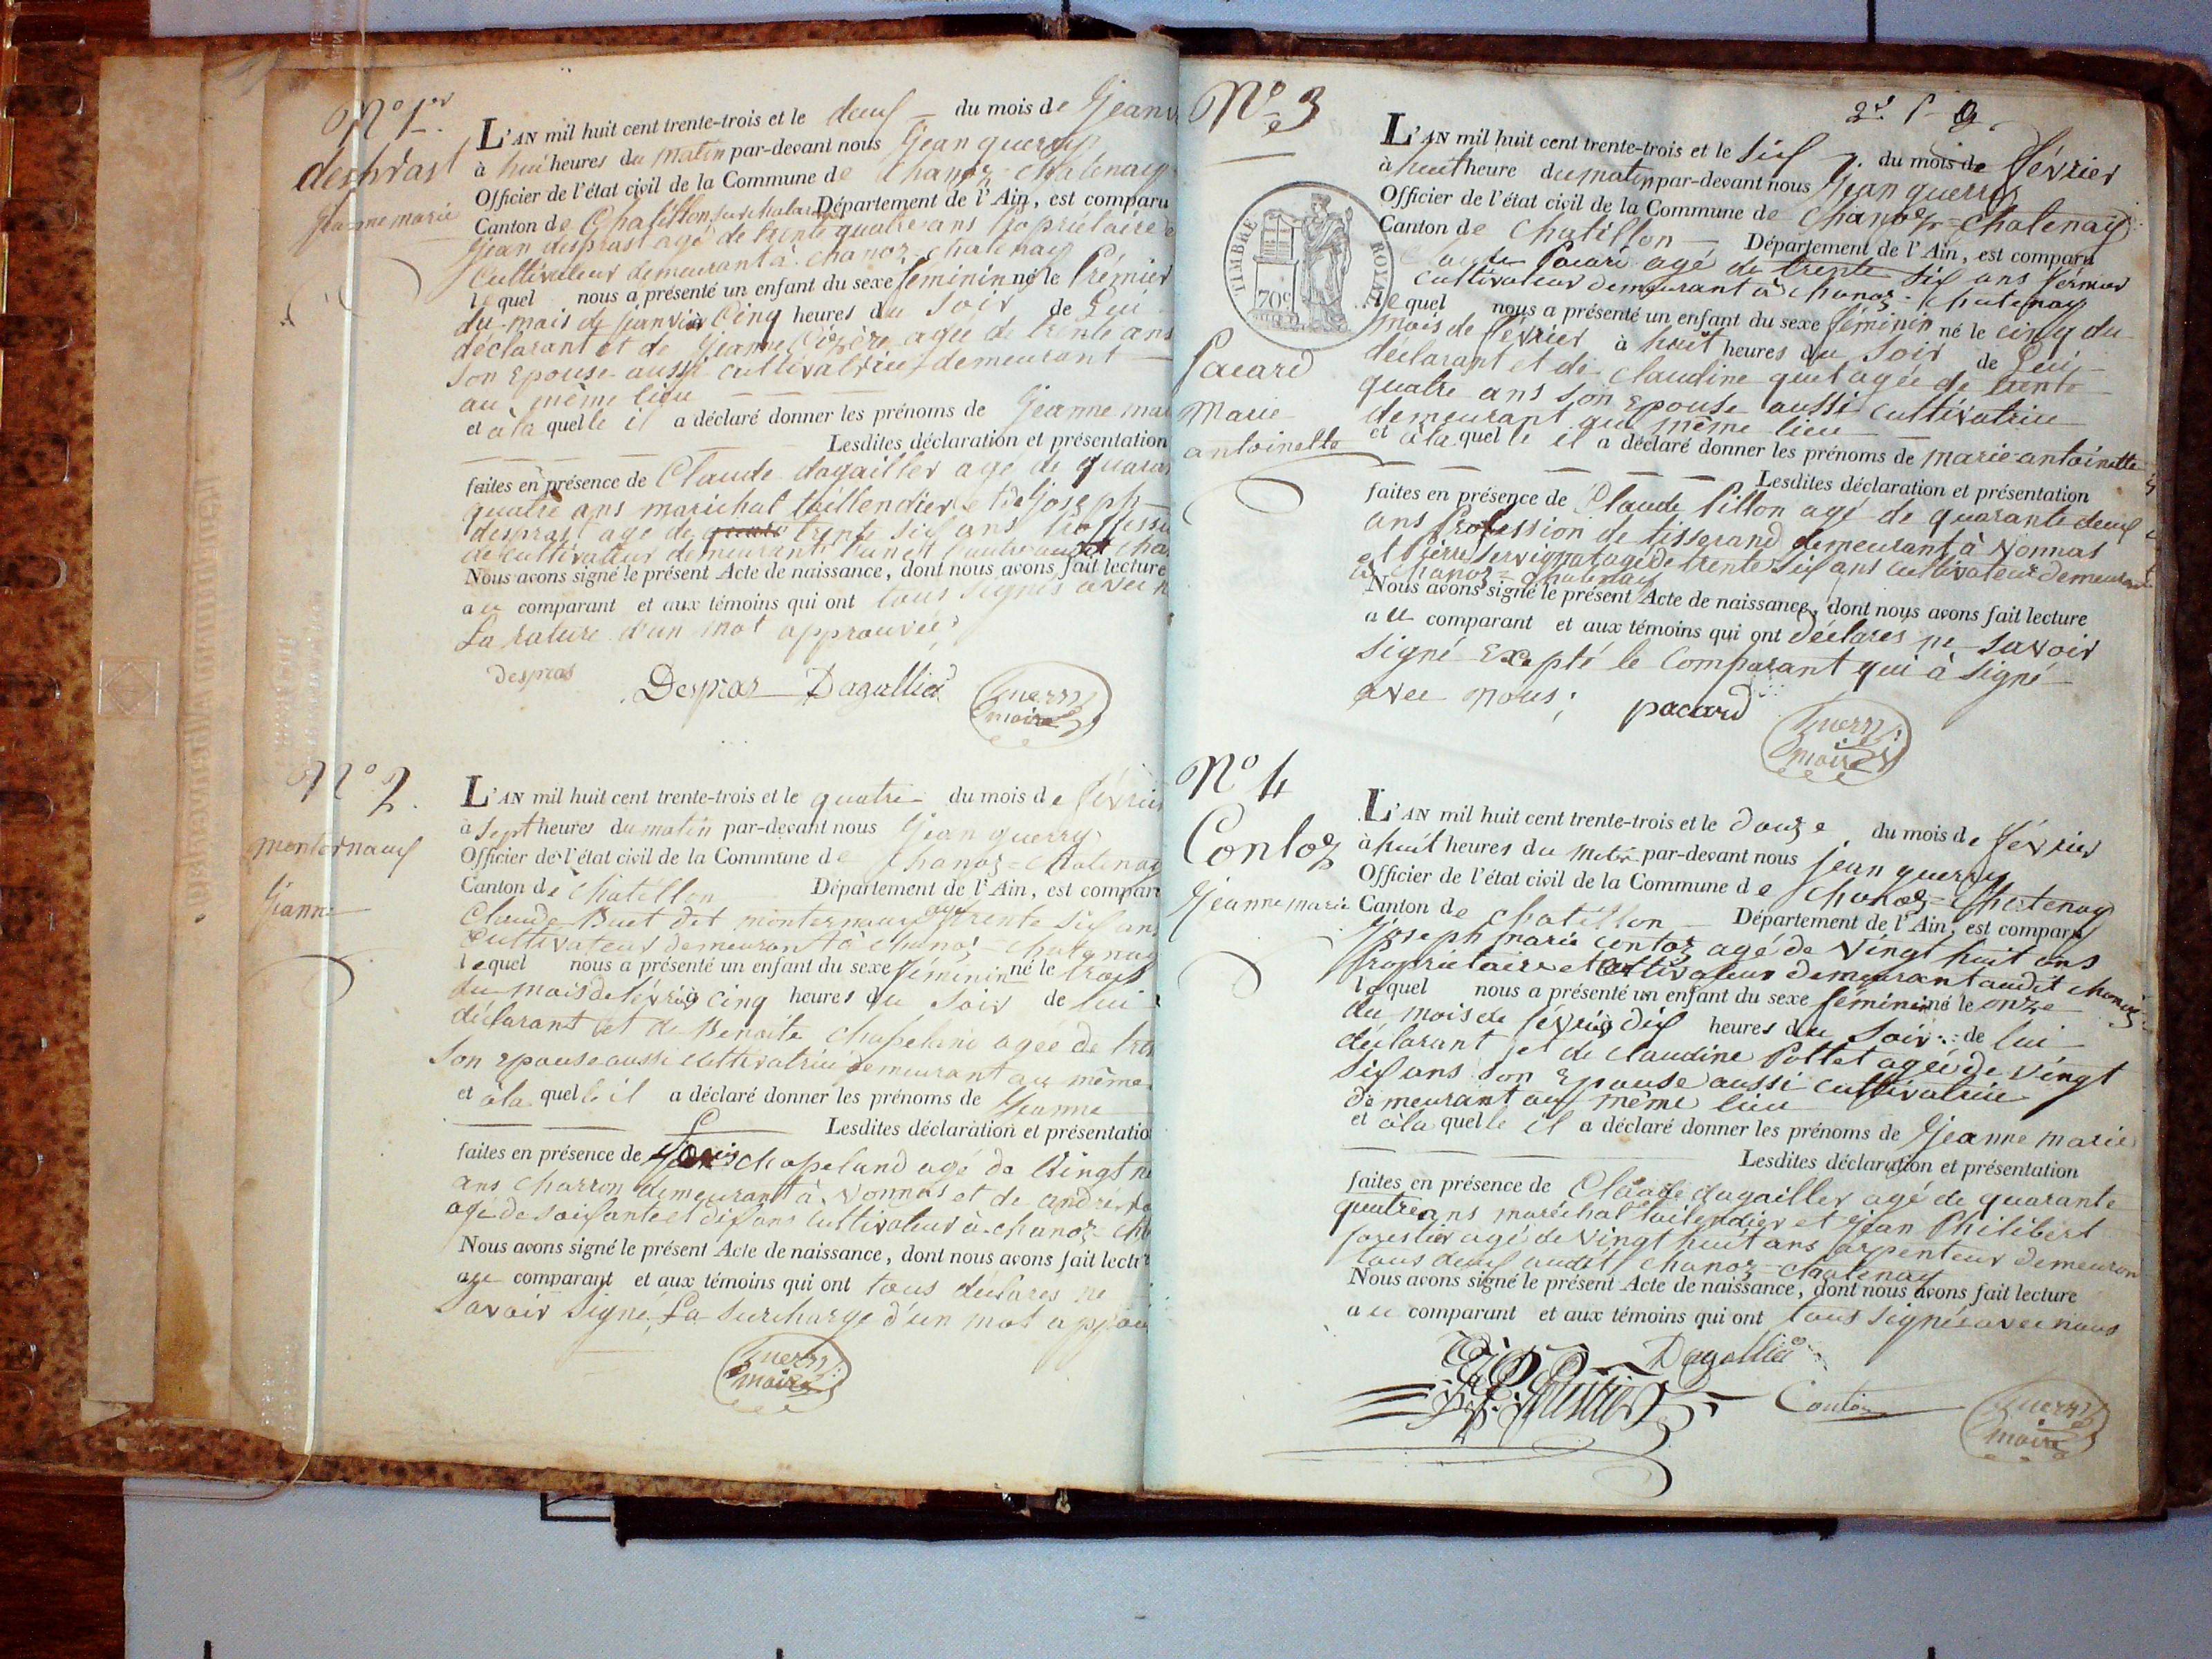 N° 1er.
desprast
Jeanne marie
L'AN mil huit cent trente-trois et le deux du mois de
à huit heures du matin par-devant nous Jean guerry
Officier de l'état civil de la Commune de Chanoz-Chatenay
Canton de Chatillon sur chalar Département de l'Ain, est comparu
Jean desprast agé de trente quatre ans Propriétaire
Cultivateur demeurant à chanoz-chatenay
lequel nous a présenté un enfant du sexe féminin né le Premier
du mois de janvier à Cinq heures du Soir de Lui
déclarant et de Jeanne agée de trente ans
Son Epouse aussi cultivatrice demeurant
au même lieu
et à la quelle il a déclaré donner les prénoms de Jeanne
Lesdites déclaration et présentation
faites en présence de Claude dagallier agé de
quatre ans maréchal taillendier et de Joseph
desprast age de trente six ans
de cultivateur demeurants l'un et l'autre audit
Nous avons signé le présent Acte de naissance, dont nous avons fait lecture
au comparant et aux témoins qui ont tous signés avec
La rature d'un mot approuvée
despras
Despras Dagallier
Guerry
maire
N° 2.
monternaux
Jeanne
L'AN mil huit cent trente-trois et le quatre du mois de
à Sept heures du matin par-devant nous Jean guerry
Officier de l'état civil de la Commune de Chanoz-Chatenay
Canton de Chatillon Département de l'Ain, est
Claude Buet dit monternaux agé trente Six
Cultivateur demeurant à chanoz
lequel nous a présenté un enfant du sexe féminin né le trois
du mois de février à cinq heures du Soir de lui
déclarant et de Benoite agée de
Son Epouse aussi cultivatrice demeurant au même
et à la quelle il a déclaré donner les prénoms de Jeanne
Lesdites déclaration et
faites en présence de chapeland agé de Vingt
ans charron demeurant à Vonnas et de andré
agé de soixante et dix ans cultivateur à chanoz
Nous avons signé le présent Acte de naissance, dont nous avons fait
au comparant et aux témoins qui ont tous déclarés ne
Savoir Signé, La Surcharge d'un mot
Guerry
maire
N° 3
TIMBRE ROYAL
70c
Pacard
Marie
antoinette
L'AN mil huit cent trente-trois et le Six du mois de février
à huit heure du matin par-devant nous Jean guerry
Officier de l'état civil de la Commune de Chanoz-Chatenay
Canton de Chatillon Département de l'Ain, est comparu
Claude Pacard agé de trente Six ans fermier
Cultivateur demeurant à chanoz-chatenay
lequel nous a présenté un enfant du sexe féminin né le cinq du
mois de février à huit heures du Soir de Lui
déclarant et de claudine quet agée de trente
quatre ans Son Epouse aussi cultivatrice
demeurant au même lieu
et à la quelle il a déclaré donner les prénoms de marie antoinette
Lesdites déclaration et présentation
faites en présence de Claude Pillon agé de quarante deux
ans Profession de tisserand demeurant à Vonnas
et Pierre Servignat agé de trente Six ans cultivateur
à chanoz-chatenay
Nous avons signé le présent Acte de naissance, dont nous avons fait lecture
au comparant et aux témoins qui ont déclarés ne savoir
Signé Excepté le Comparant qui à Signé
avec nous;
pacard
Guerry
maire
N° 4
Contoz
Jeanne marie
L'AN mil huit cent trente-trois et le douze du mois de février
à huit heures du matin par-devant nous jean guerry
Officier de l'état civil de la Commune de Chanoz-Chatenay
Canton de Chatillon Département de l'Ain, est comparu
Joseph marie contoz agé de Vingt huit ans
Propriétaire et cultivateur demeurant audit chanoz
lequel nous a présenté un enfant du sexe féminin né le onze
du mois de février à dix heures du Soir de lui
déclarant et de claudine Pottet agée de Vingt
six ans Son Epouse aussi cultivatrice
demeurant au même lieu
et à la quelle il a déclaré donner les prénoms de Jeanne marie
Lesdites déclaration et présentation
faites en présence de Claude dagallier agé de quarante
quatre ans maréchal tailendier et Jean Philibert
forestier agé de Vingt huit ans arpenteur
tous deux audit chanoz-chatenay
Nous avons signé le présent Acte de naissance, dont nous avons fait lecture
au comparant et aux témoins qui ont tous signés avec nous
Dagallier
Contoz
Guerry
maire